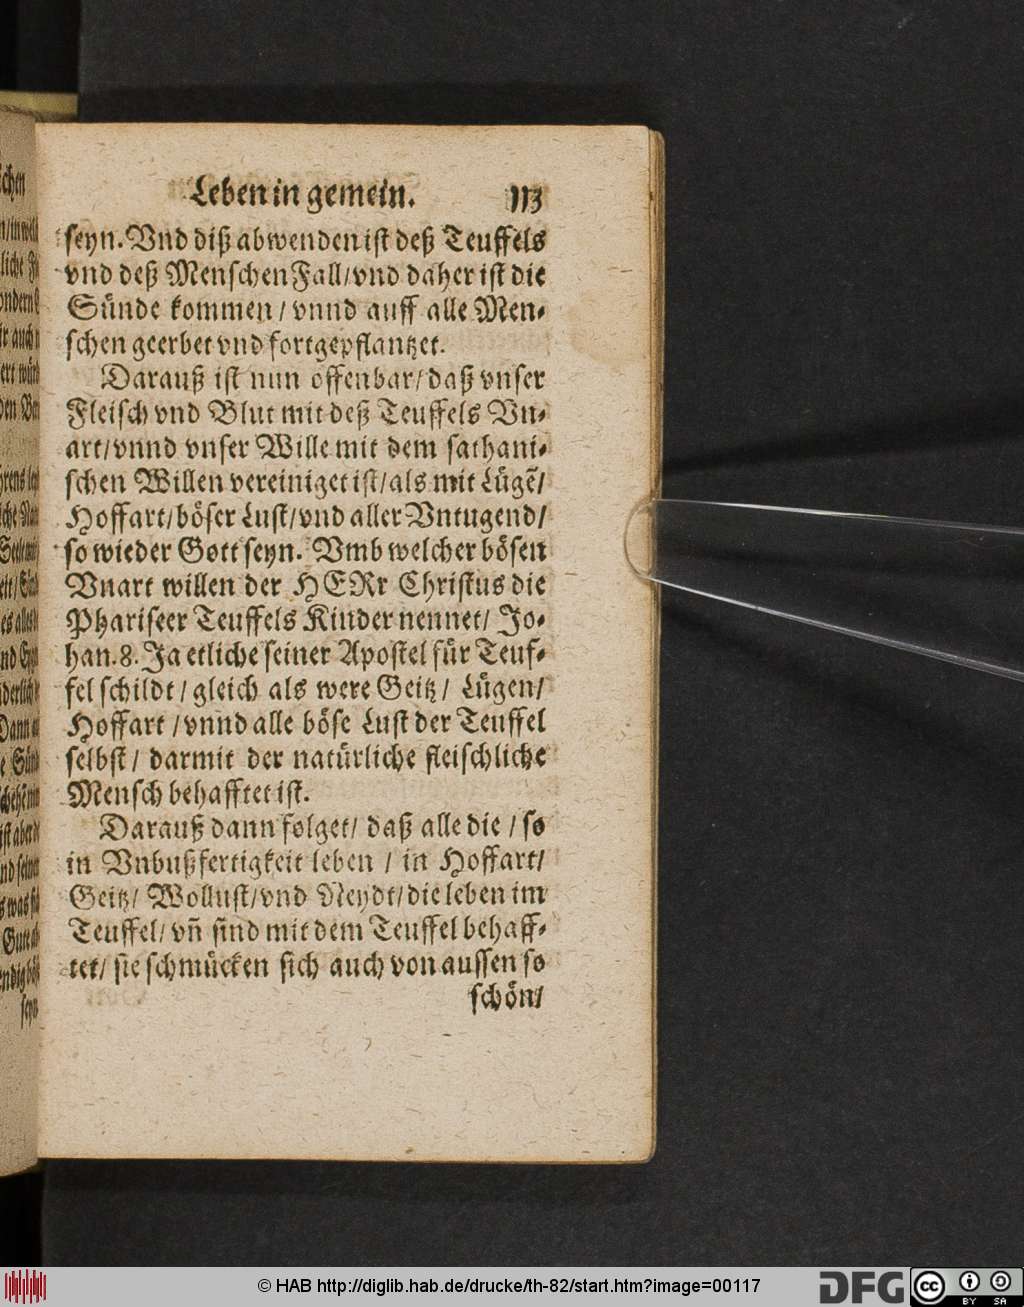 Leben in gemein. 113
seyn. Vnd diß abwenden ist deß Teuffels
vnd deß Menschen Fall/ vnd daher ist die
Sünde kommen / vnnd auff alle Men-
schen geerbet vnd fortgepflantzet.
Darauß ist nun offenbar/ daß vnser
Fleisch vnd Blut mit deß Teuffels Vn-
art/ vnnd vnser Wille mit dem sathani-
schen Willen vereiniget ist/ als mit Lügẽ/
Hoffart/ böser Lust/ vnd aller Vntugend/
so wieder Gott seyn. Vmb welcher bösen
Vnart willen der HERr Christus die
Phariseer Teuffels Kinder nennet/ Jo-
han. 8. Ja etliche seiner Apostel für Teuf-
fel schildt / gleich als were Geitz/ Lügen/
Hoffart / vnnd alle böse Lust der Teuffel
selbst / darmit der natürliche fleischliche
Mensch behafftet ist.
Darauß dann folget/ daß alle die / so
in Vnbußfertigkeit leben / in Hoffart/
Geitz/ Wollust/ vnd Neydt/ die leben im
Teuffel/ vñ sind mit dem Teuffel behaff-
tet/ sie schmücken sich auch von aussen so
schön/
© HAB http://diglib.hab.de/drucke/th-82/start.htm?image=00117
DFG
cc BY SA